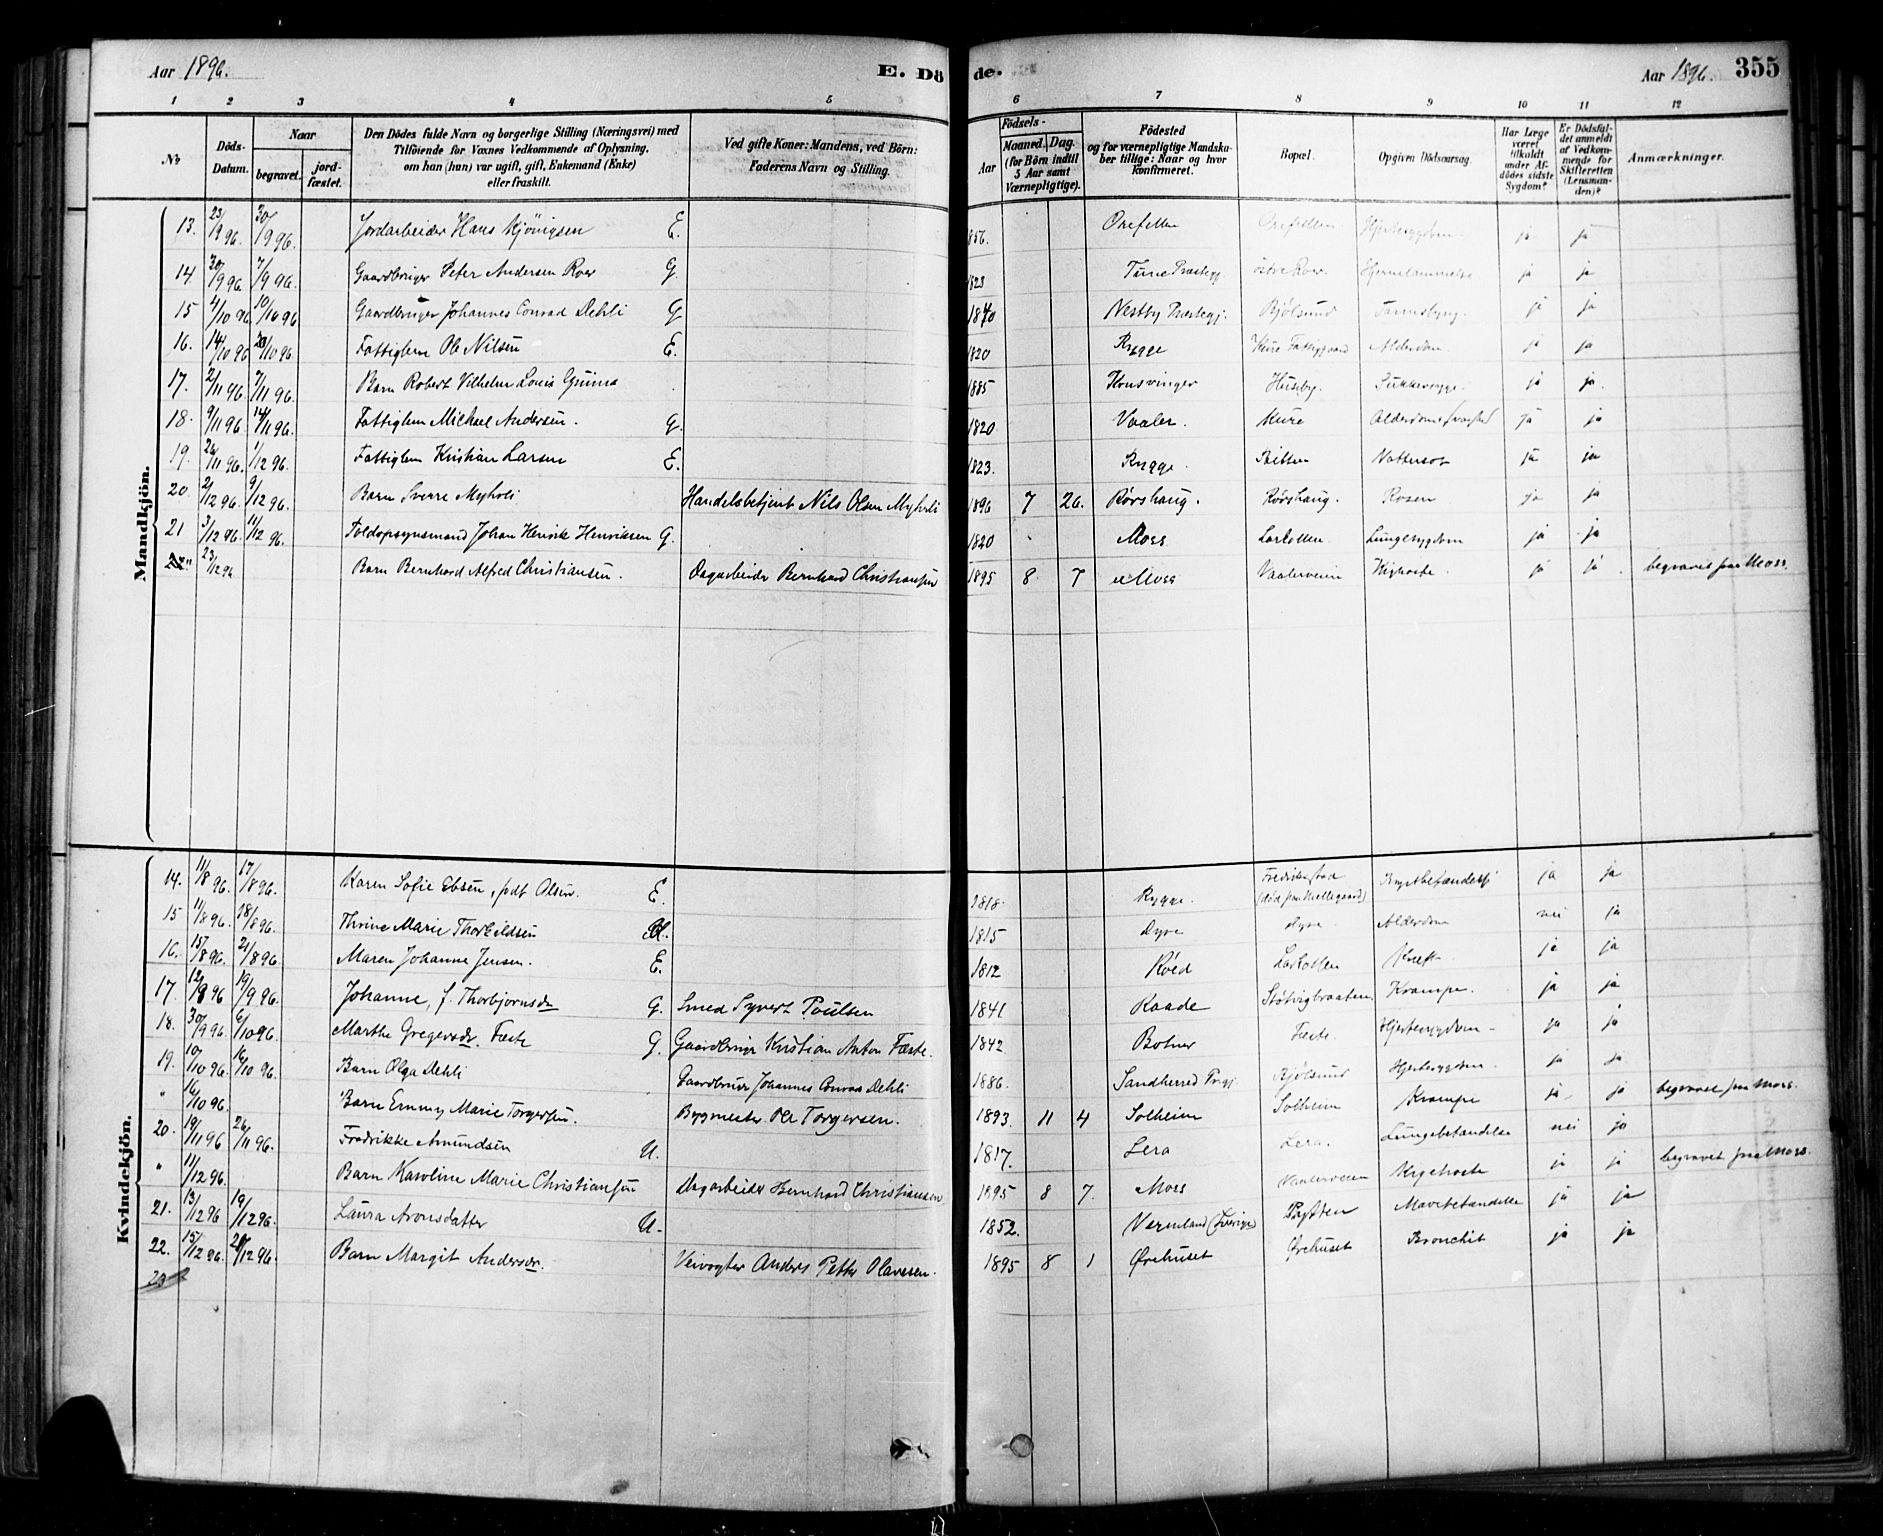 Aar 1896. E. Dö de. Aar 1896. 355
1 2 3 4 5 6 7 8 9 10 11 12
No
Döds-Datum.
Naar begravet. jord-fæstet.
Den Dödes fulde Navn og borgerlige Stilling (Næringsvei) med Tilföiende for Voxnes Vedkommende af Oplysning, om han (hun) var ugift, gift, Enkemand (Enke) eller fraskilt.
Ved gifte Koner: Mandens, ved Börn: Faderens Navn og Stilling.
Födsels- Aar Maaned. Dag. (for Börn indtil 5 Aar samt Værnepligtige).
Födested og for værnepligtige Mandskaber tillige: Naar og hvor konfirmeret.
Bopæl.
Opgiven Dödsaarsag.
Har Læge været tilkaldt under Afdödes sidste Sygdom?
Er Dödsfaldet anmeldt af Vedkommende for Skifteretten (Lensmanden)?
Anmærkninger.
Mandkjön.
13. 23/9 96. 30/9 96. Jordarbeider Hans Kjönigsen E. 1856. Orefellen Orefellen Hjertesygdom ja ja
14 30/9 96 7/9 96. Gaardbruger Peter Andersen Roer G. 1823 Tune Præstegj. östre Roer Hjernelammelse ja ja
15 4/10 96 10/10 96 Gaardbruger Johannes Conrad Dehli G 1840 Nestby Præstegj. Bjölsund ja ja
16. 14/10 96 20/10 96. Fattiglem Ole Nilsen E. 1820 Rygge Kure Fattiggaard Alderdom ja ja
17. 2/11 96 7/11 96. Barn Robert Vilhelm Louis 1885 Kongsvinger Huseby. Sukkersyge. ja ja.
18. 9/11 96 14/11 96. Fattiglem Michael Andersen. G. 1820 Vaaler. Kure ja ja
19. 26/11 96. 1/12 96. Fattiglem Kristian Larsen E. 1823. Rygge. Vattersot ja ja
20 2/12 96. 9/12 96. Barn Sverre Myhrli Handelsbetjent Nils Olsen Myhrli 1896 7 26. Rörshaug. Rörshaug. Rosen ja ja
21 3/12 96 11/12 96. Toldopsynsmand Johan Henrik Henriksen G. 1820 Moss Larkollen Lungesygdom ja ja
22 " 23/12 96 Barn Bernhard Alfred Christiansen. Dagarbeider Bernhard Christiansen 1895 8 7 Moss Vaalerveien Kighoste. ja ja begravet paa Moss.
Kvindekjön.
14. 11/8 96. 17/8 96. Karen Sofie Ebsen, födt Olsen. E. 1818 Rygge. Fredrikstad (död paa ) ja ja
15 11/8 96. 18/8 96. Thrine Marie Thorkildsen 1815 Dyre Dyre. Alderdom nei ja
16. 15/8 96. 21/8 96 Maren Johanne Jensen. E. 1812 Röed Larkollen Kræft. ja ja
17. 12/9 96 19/9 96. Johanne, f. Thorbjörnsdr G. Smed Syvert Poulsen 1841 Raade Stötvigbraaten Krampe. ja ja
18. 30/9 96. 6/10 96. Marthe Gregersdr. Feste G. Gaardbruger Kristian Anton Feste. 1842 Botner Feste Hjertesygdom ja ja
19. 10/10 96. 16/10 96. Barn Olga Dehli Gaardbruger Johannes Conrad Dehli 1886. Sandherred Prgj. Bjölsund Hjertesygdom ja ja
" 16/10 96. Barn Emmy Marie Torgersen. Bygmester Ole Torgersen. 1893 11 4 Solheim Solheim Krampe ja ja begravet paa Moss.
20. 19/11 96 26/11 96. Fredrikke Amundsen U. 1817. Lera Lera. Lungebetændelse nei ja
" 11/12 96. Barn Karoline Marie Christiansen Dagarbeider Bernhard Christiansen 1895 8 7. Moss Vaalerveien Kighoste ja ja begravet paa Moss.
21. 13/12 96 19/12 96. Laura Aronsdatter U. 1852. Vermland (Sverige) Mavebetændelse ja ja
22. 15/12 96. 21/12 96. Barn Margit Andersdr. Veivogter Anders Petter Olavesen. 1895 8 1 Örehuset Örehuset Bronchit ja ja
23